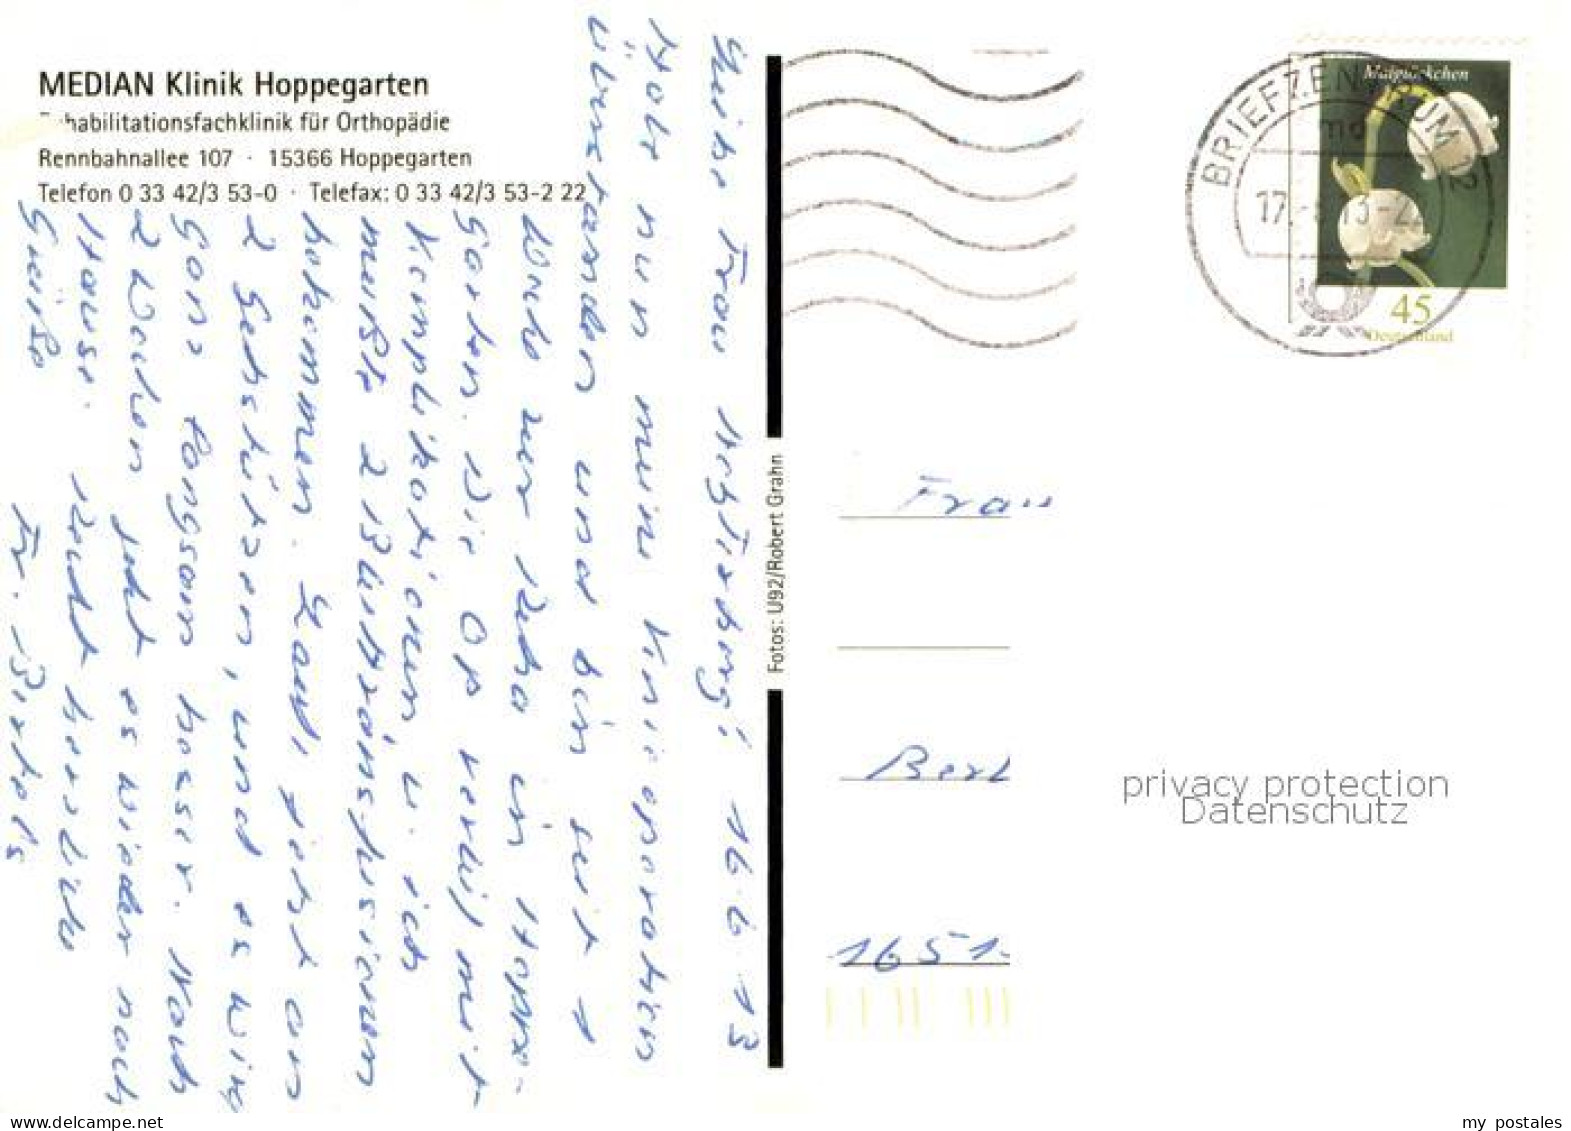 MEDIAN Klinik Hoppegarten
habilitationsfachklinik für Orthopädie
Rennbahnallee 107 · 15366 Hoppegarten
Telefon 0 33 42/3 53-0 · Telefax: 0 33 42/3 53-2 22
Frau 16.6.13
Hab nun meine Knieoperation
überstanden und bin seit 1
Woche zur Reha in Hoppe-
garten. Die OP verlief mit
Komplikationen, u. ich
mußte 2 Bluttransfusionen
bekommen. Laufe jetzt an
2 Gehstützen, und es wird
ganz langsam besser. Nach
2 Wochen geht es wieder nach
Hause. Recht herzliche
Grüße Fr. Bartels
Fotos: U92/Robert Grahn
BRIEFZENTRUM 12
mo
17.
13-2
Maiglöckchen
45
Deutschland
Frau
Berl
1651
privacy protection
Datenschutz
my postales